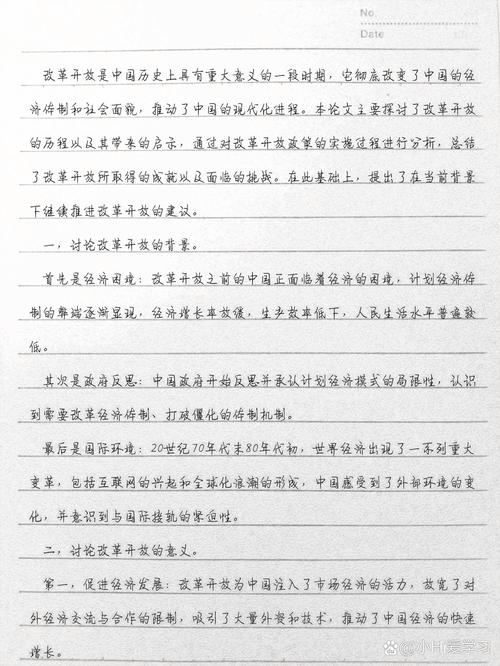 No.
Date
改革开放是中国历史上具有重大意义的一段时期，它彻底改变了中国的经
济体制和社会面貌，推动了中国的现代化进程。本论文主要探讨了改革开放
的历程以及其带来的启示，通过对改革开放政策的实施过程进行分析，总结
了改革开放所取得的成就以及面临的挑战。在此基础上，提出了在当前背景
下继续推进改革开放的建议。
一，讨论改革开放的背景。
首先是经济困境：改革开放之前的中国正面临着经济的困境，计划经济体
制的弊端逐渐显现，经济增长率放缓，生产效率低下，人民生活水平普遍较
低。
其次是政府反思：中国政府开始反思并承认计划经济模式的局限性，认识
到需要改革经济体制、打破僵化的体制机制。
最后是国际环境：20世纪70年代末80年代初，世界经济出现了一系列重大
变革，包括互联网的兴起和全球化浪潮的形成，中国感受到了外部环境的变
化，并意识到与国际接轨的紧迫性。
二，讨论改革开放的意义。
第一，促进经济发展：改革开放为中国注入了市场经济的活力，放宽了对
外经济交流与合作的限制，吸引了大量外资和技术，推动了中国经济的快速
增长。
@小Hi爱学习